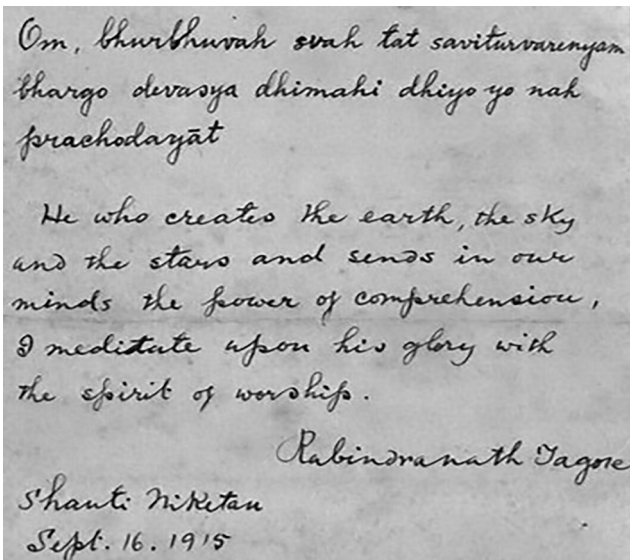 Om, bhurbhuvah svah tat saviturvarenyam
bhargo devasya dhimahi dhiyo yo nah
prachodayāt
He who creates the earth, the sky
and the stars and sends in our
minds the power of comprehension,
I meditate upon his glory with
the spirit of worship.
Rabindranath Tagore
Shanti Niketan
Sept. 16. 1915